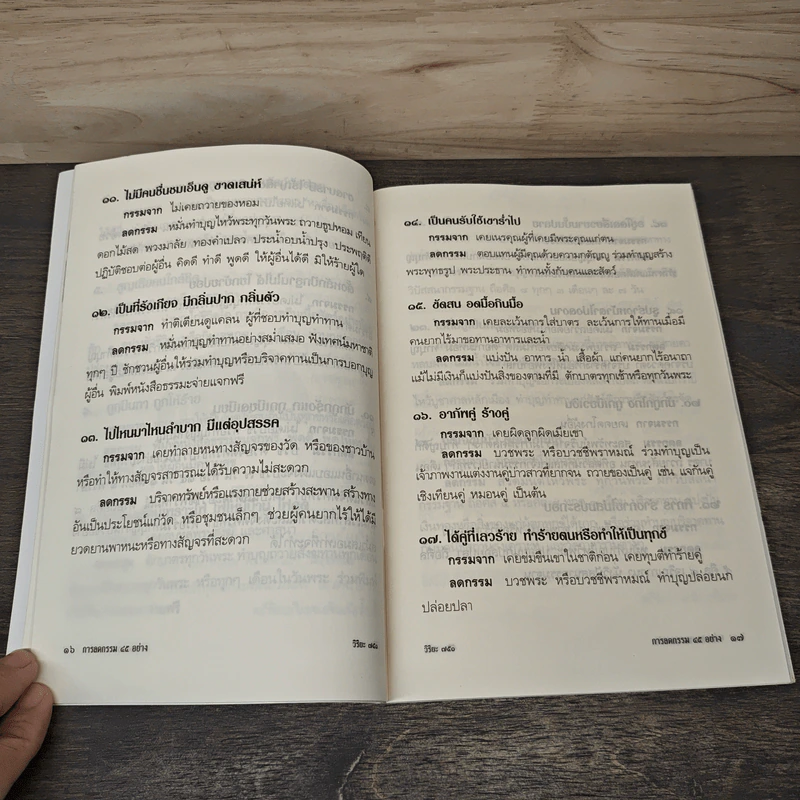 ๑๑. ไม่มีคนชื่นชมเอ็นดู ขาดเสน่ห์
กรรมจาก ไม่เคยถวายของหอม
ลดกรรม หมั่นทำบุญไหว้พระทุกวันพระ ถวายธูปหอม เทียน
ดอกไม้สด พวงมาลัย ทองคำเปลว ประน้ำอบน้ำปรุง ประพฤติดี
ปฏิบัติชอบต่อผู้อื่น คิดดี ทำดี พูดดี ให้ผู้อื่นได้ดี มิให้ร้ายผู้ใด
๑๒. เป็นที่รังเกียจ มีกลิ่นปาก กลิ่นตัว
กรรมจาก ทำติเตียนดูแคลน ผู้ที่ชอบทำบุญทำทาน
ลดกรรม หมั่นทำบุญทำทานอย่างสม่ำเสมอ ฟังเทศน์มหาชาติ
ทุกๆ ปี ชักชวนผู้อื่นให้ร่วมทำบุญหรือบริจาคทานเป็นการบอกบุญ
ผู้อื่น พิมพ์หนังสือธรรมะจ่ายแจกฟรี
๑๓. ไปไหนมาไหนลำบาก มีแต่อุปสรรค
กรรมจาก เคยทำลายหนทางสัญจรของวัด หรือของชาวบ้าน
หรือทำให้ทางสัญจรสาธารณะได้รับความไม่สะดวก
ลดกรรม บริจาคทรัพย์หรือแรงกายช่วยสร้างสะพาน สร้างทาง
อันเป็นประโยชน์แก่วัด หรือชุมชนเล็กๆ ช่วยผู้คนยากไร้ให้ได้มี
ยวดยานพาหนะหรือทางสัญจรที่สะดวก
๑๖ การลดกรรม ๔๕ อย่าง
วิริยะ ๗๕๑
๑๔. เป็นคนรับใช้เขาร่ำไป
กรรมจาก เคยเนรคุณผู้ที่เคยมีพระคุณแก่ตน
ลดกรรม ตอบแทนผู้มีคุณด้วยความกตัญญู ร่วมทำบุญสร้าง
พระพุทธรูป พระประธาน ทำทานทั้งกับคนและสัตว์
๑๕. ขัดสน อดมื้อกินมื้อ
กรรมจาก เคยละเว้นการใส่บาตร ละเว้นการให้ทานเมื่อมี
คนยากไร้มาขอทานอาหารและน้ำ
ลดกรรม แบ่งปัน อาหาร น้ำ เสื้อผ้า แก่คนยากไร้อนาถา
แม้ไม่มีเงินก็แบ่งปันสิ่งของตามที่มี ตักบาตรทุกเช้าหรือทุกวันพระ
๑๖. อาภัพคู่ ร้างคู่
กรรมจาก เคยผิดลูกผิดเมียเขา
ลดกรรม บวชพระ หรือบวชชีพราหมณ์ ร่วมทำบุญเป็น
เจ้าภาพงานแต่งงานคู่บ่าวสาวที่ยากจน ถวายของเป็นคู่ เช่น แจกันคู่
เชิงเทียนคู่ หมอนคู่ เป็นต้น
๑๗. ได้คู่ที่เลวร้าย ทำร้ายตนหรือทำให้เป็นทุกข์
กรรมจาก เคยข่มขืนเขาในชาติก่อน เคยทุบตีทำร้ายคู่
ลดกรรม บวชพระ หรือบวชชีพราหมณ์ ทำบุญปล่อยนก
ปล่อยปลา
วิริยะ ๗๕๑
การลดกรรม ๔๕ อย่าง ๑๗